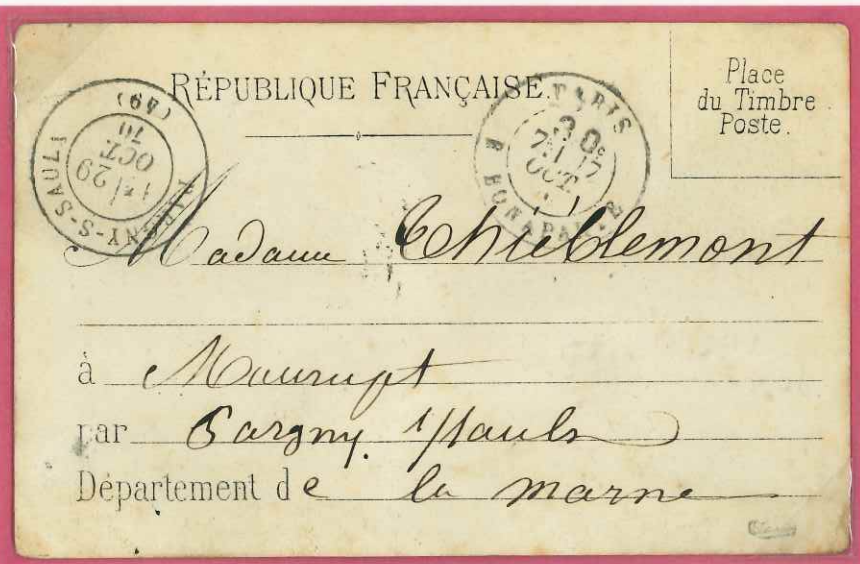 RÉPUBLIQUE FRANÇAISE.
Place
du Timbre
Poste.
PARGNY-S-SAULX
29
OCT
70
(49)
PARIS
OCT
R BONAPARTE
Madame Thiéblemont
à Maurupt
par Pargny s/Saulx
Département de la marne